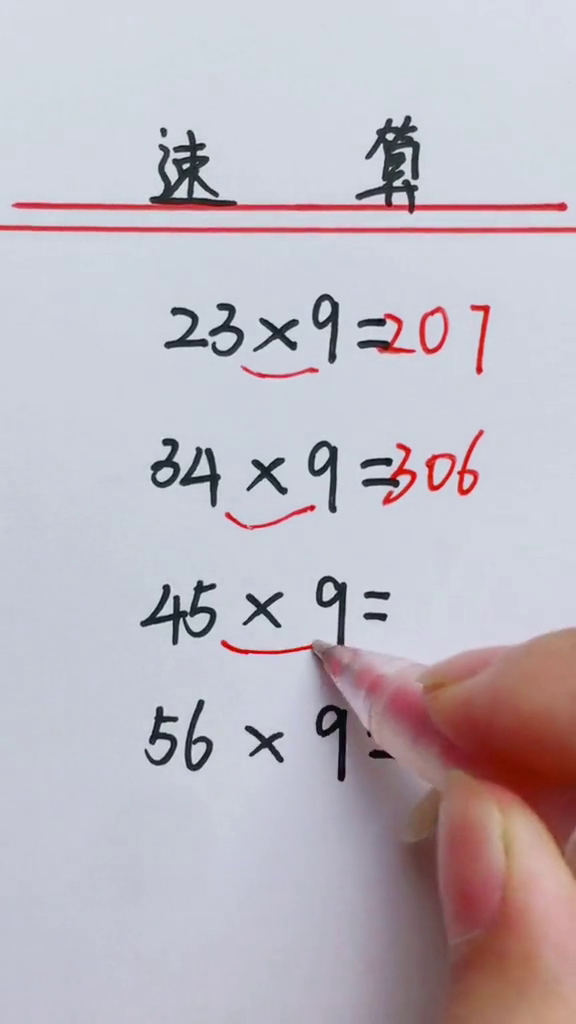 速 算
23×9=207
34×9=306
45×9=
56×9=